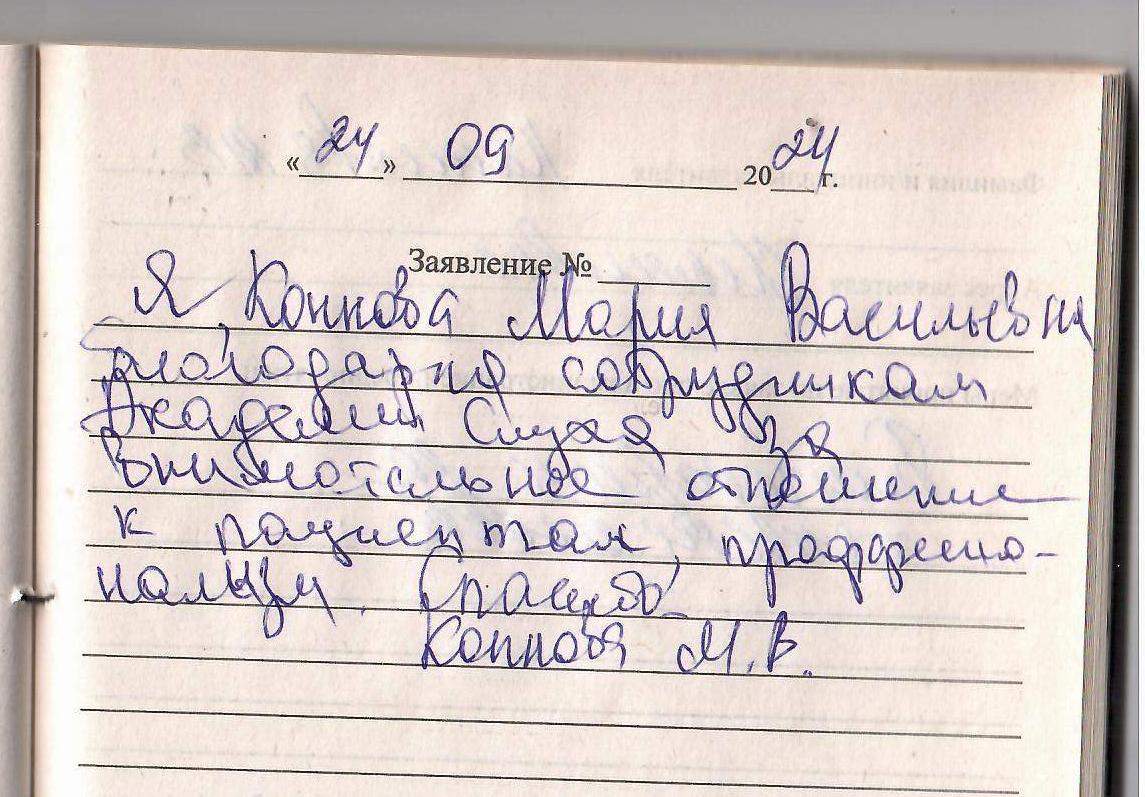 «24» 09 2024 г.
Заявление №
Я, Коннова Мария Васильевна
благодарна сотрудникам
Академии Слуха за
внимательное отношение
к пациентам, проффессио-
нализм. Спасибо.
Коннова М.В.